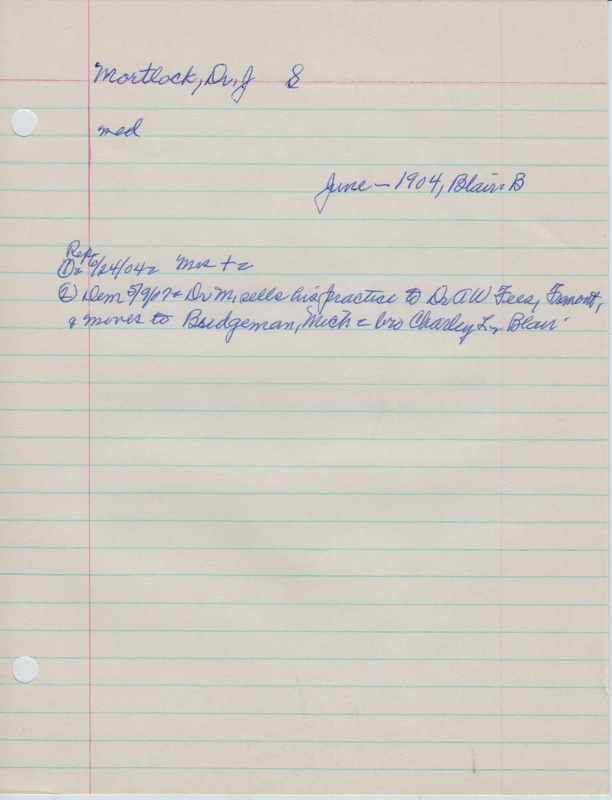 Mortlock, Dr. J S
med
June - 1904, Blair = B
Rept
(1) = 6/24/04 = Mos + =
(2) Dem 5/9/07 = Dr M, sells his practice to Dr A W Fees, Fremont,
& moves to Bridgeman, Mich = bro Charley L in Blair